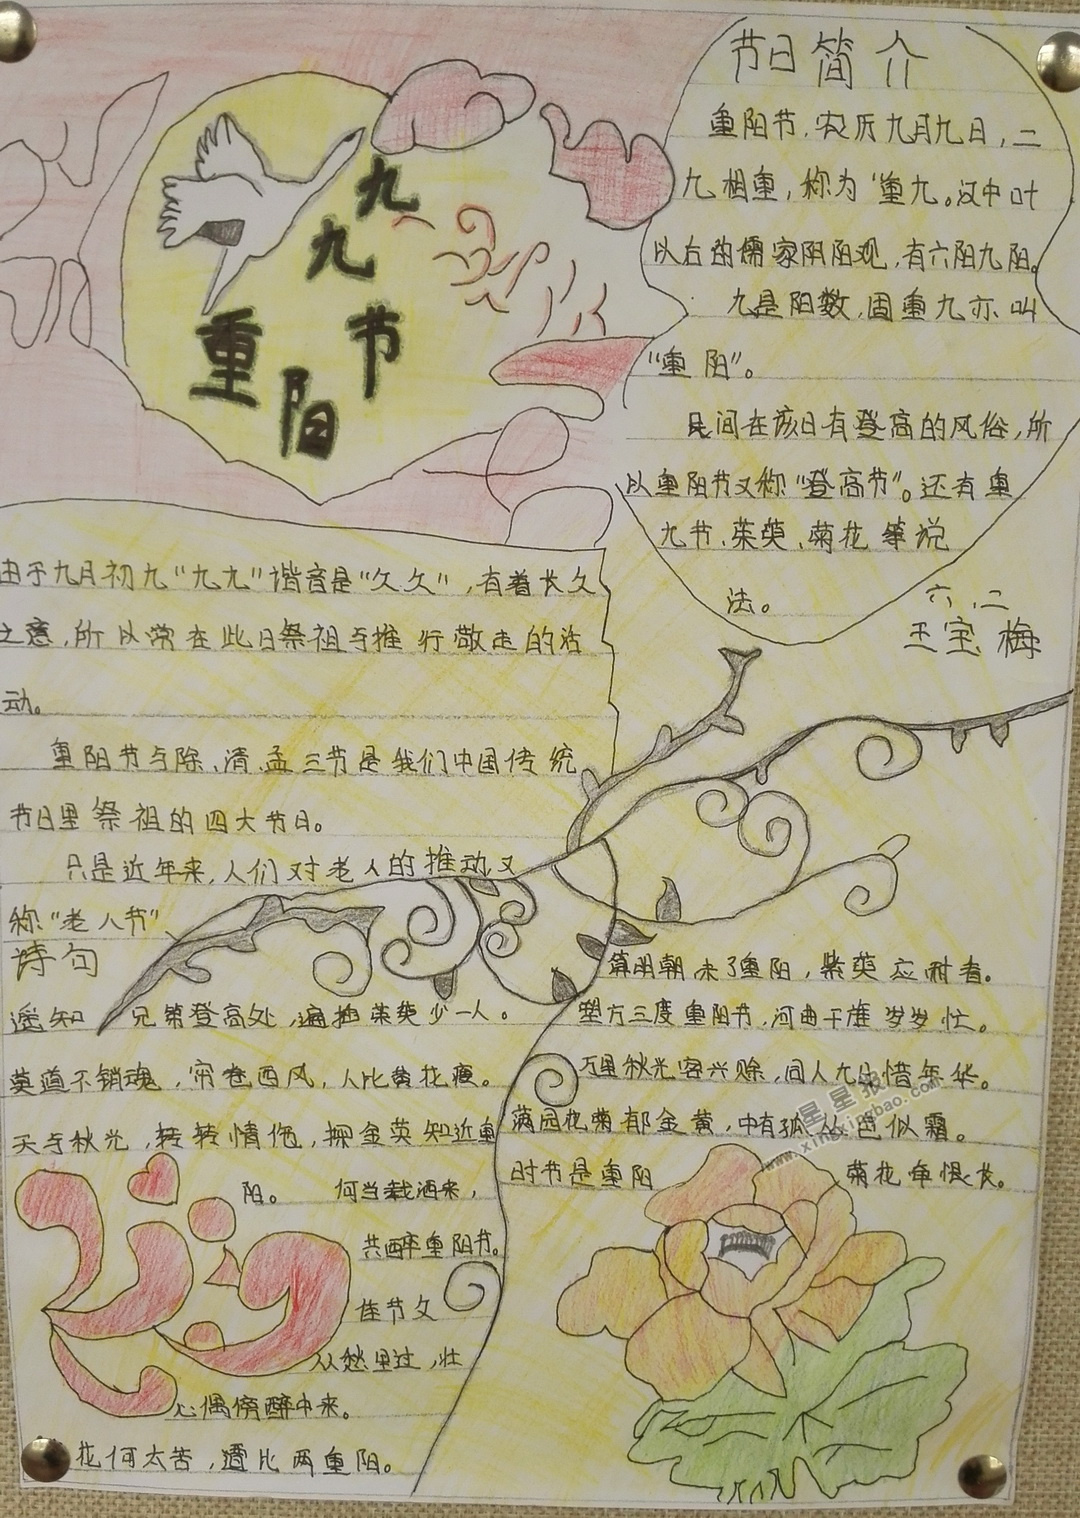 九
九
重
阳
节
节日简介
重阳节,农历九月九日,二
九相重,称为"重九。汉中叶
以右的儒家阴阳观,有六阳九阳。
九是阳数,固重九亦叫
"重阳"。
民间在该日有登高的风俗,所
以重阳节又称"登高节"。还有重
九节、茱萸、菊花等说
法。
六、二
王宝梅
由于九月初九"九九"谐音是"久久",有着长久
之意,所以常在此日祭祖与推行敬走的活
动。
重阳节与除、清、孟三节是我们中国传统
节日里祭祖的四大节日。
只是近年来,人们对老人的推动又
称"老人节"、
诗句
遥知兄第登高处,遍插茱萸少一人。
莫道不销魂,帘卷西风,人比黄花瘦。
天与秋光,转转情伤,探金英知近重
阳。
何当载酒来,
共醉重阳节。
佳节久
从愁里过,壮
心偶傍醉中来。
花何太苦,遭比两重阳。
篇明朝未了重阳,紫萸应耐看。
塑方三度重阳节,河曲干旌岁岁忙。
万里秋光客兴赊,同人九日惜年华。
满园花菊郁金黄,中有孤丛色似霜。
时节是重阳
菊花牵恨长。
星星报
www.xingxingbao.com